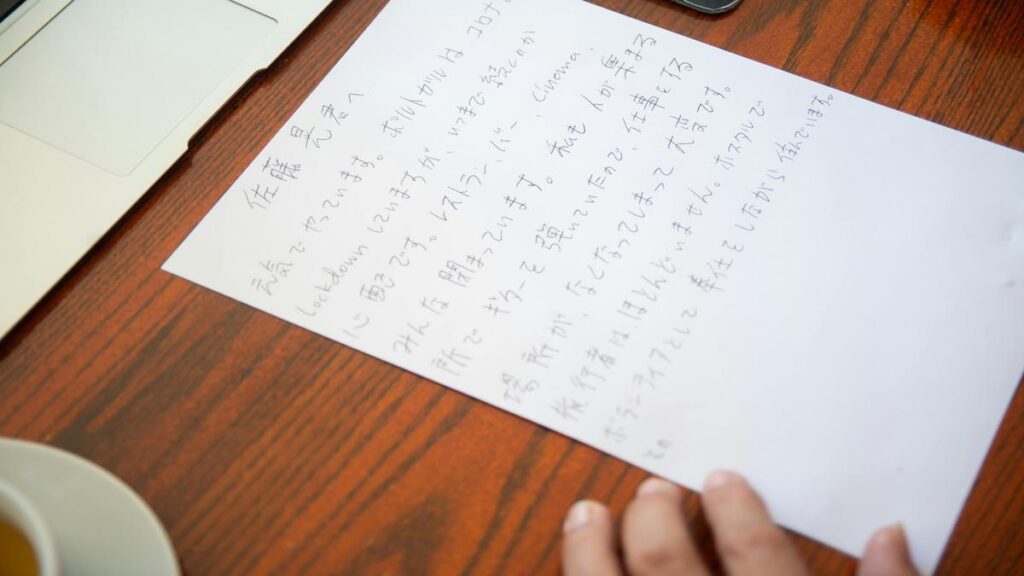 佐藤 君へ
元気でやっています。ポルトガルは、コロナ
Lockdownしていますが、いつまで続くのか
心配です。レストラン、バー、Cinema、
みんな閉まっています。私も人が集まる
所で、ギターを弾いていたので、仕事をする
場所が、なくなってしまって大変です。
旅行者は、ほとんどいません。ホスタルで
ボランティアとして奉仕をしながら働いています。
その